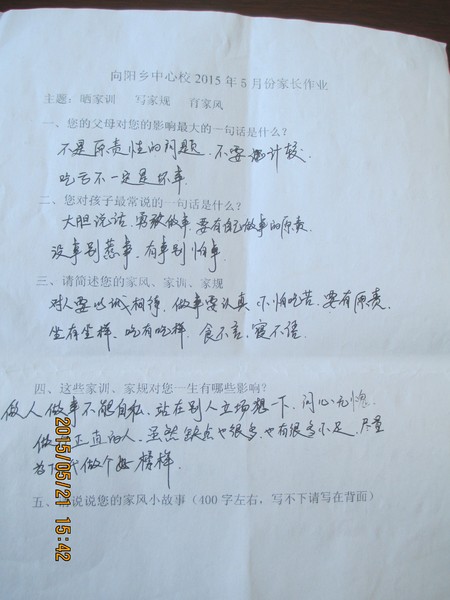 向阳乡中心校2015年5月份家长作业
主题：晒家训 写家规 育家风
一、您的父母对您的影响最大的一句话是什么？
不是原责性的问题，不要想计较，
吃亏不一定是坏事。
二、您对孩子最常说的一句话是什么？
大胆说话，勇敢做事，要有自己做事的原责，
没事别惹事，有事别怕事。
三、请简述您的家风、家训、家规
对人要以诚相待，做事要认真，不怕吃苦，要有原责，
坐有坐样，吃有吃样，食不言，寝不语
四、这些家训、家规对您一生有哪些影响？
做人做事不能自私，站在别人立场想一下，问心无愧
做 正直的人，虽然缺点也很多，也有很多不足，尽量
为下代做个好榜样。
五、 说说您的家风小故事（400字左右，写不下请写在背面）
2015/05/21 15:42